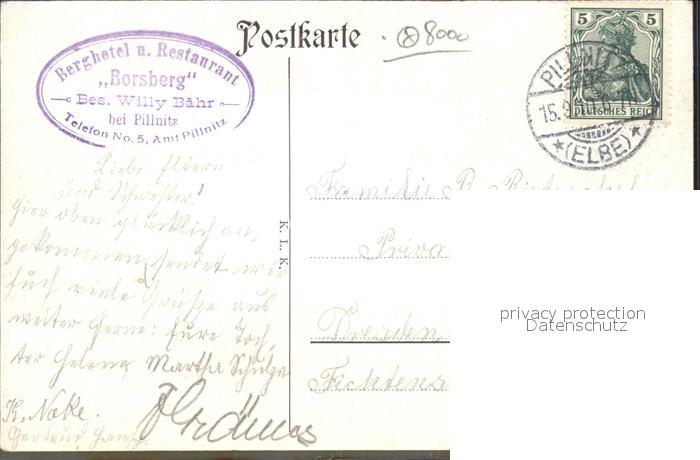 Postkarte
8000
Berghotel u. Restaurant
„Borsberg“
Bes. Willy Bähr
bei Pillnitz
Telefon No. 5, Amt Pillnitz
5 5
DEUTSCHES REICH
PILLNITZ
15.9.
*(ELBE)*
Liebe Eltern
und Schwester!
Hier oben glücklich an-
gekommen, sendet wir
Euch viele Grüsze aus
weiter Ferne: Eure Toch-
ter Helene Martha Schulze
K. Noke.
Gertrud
K. L. K.
Familie B.
Priva
Dresden
Fichtens
privacy protection
Datenschutz